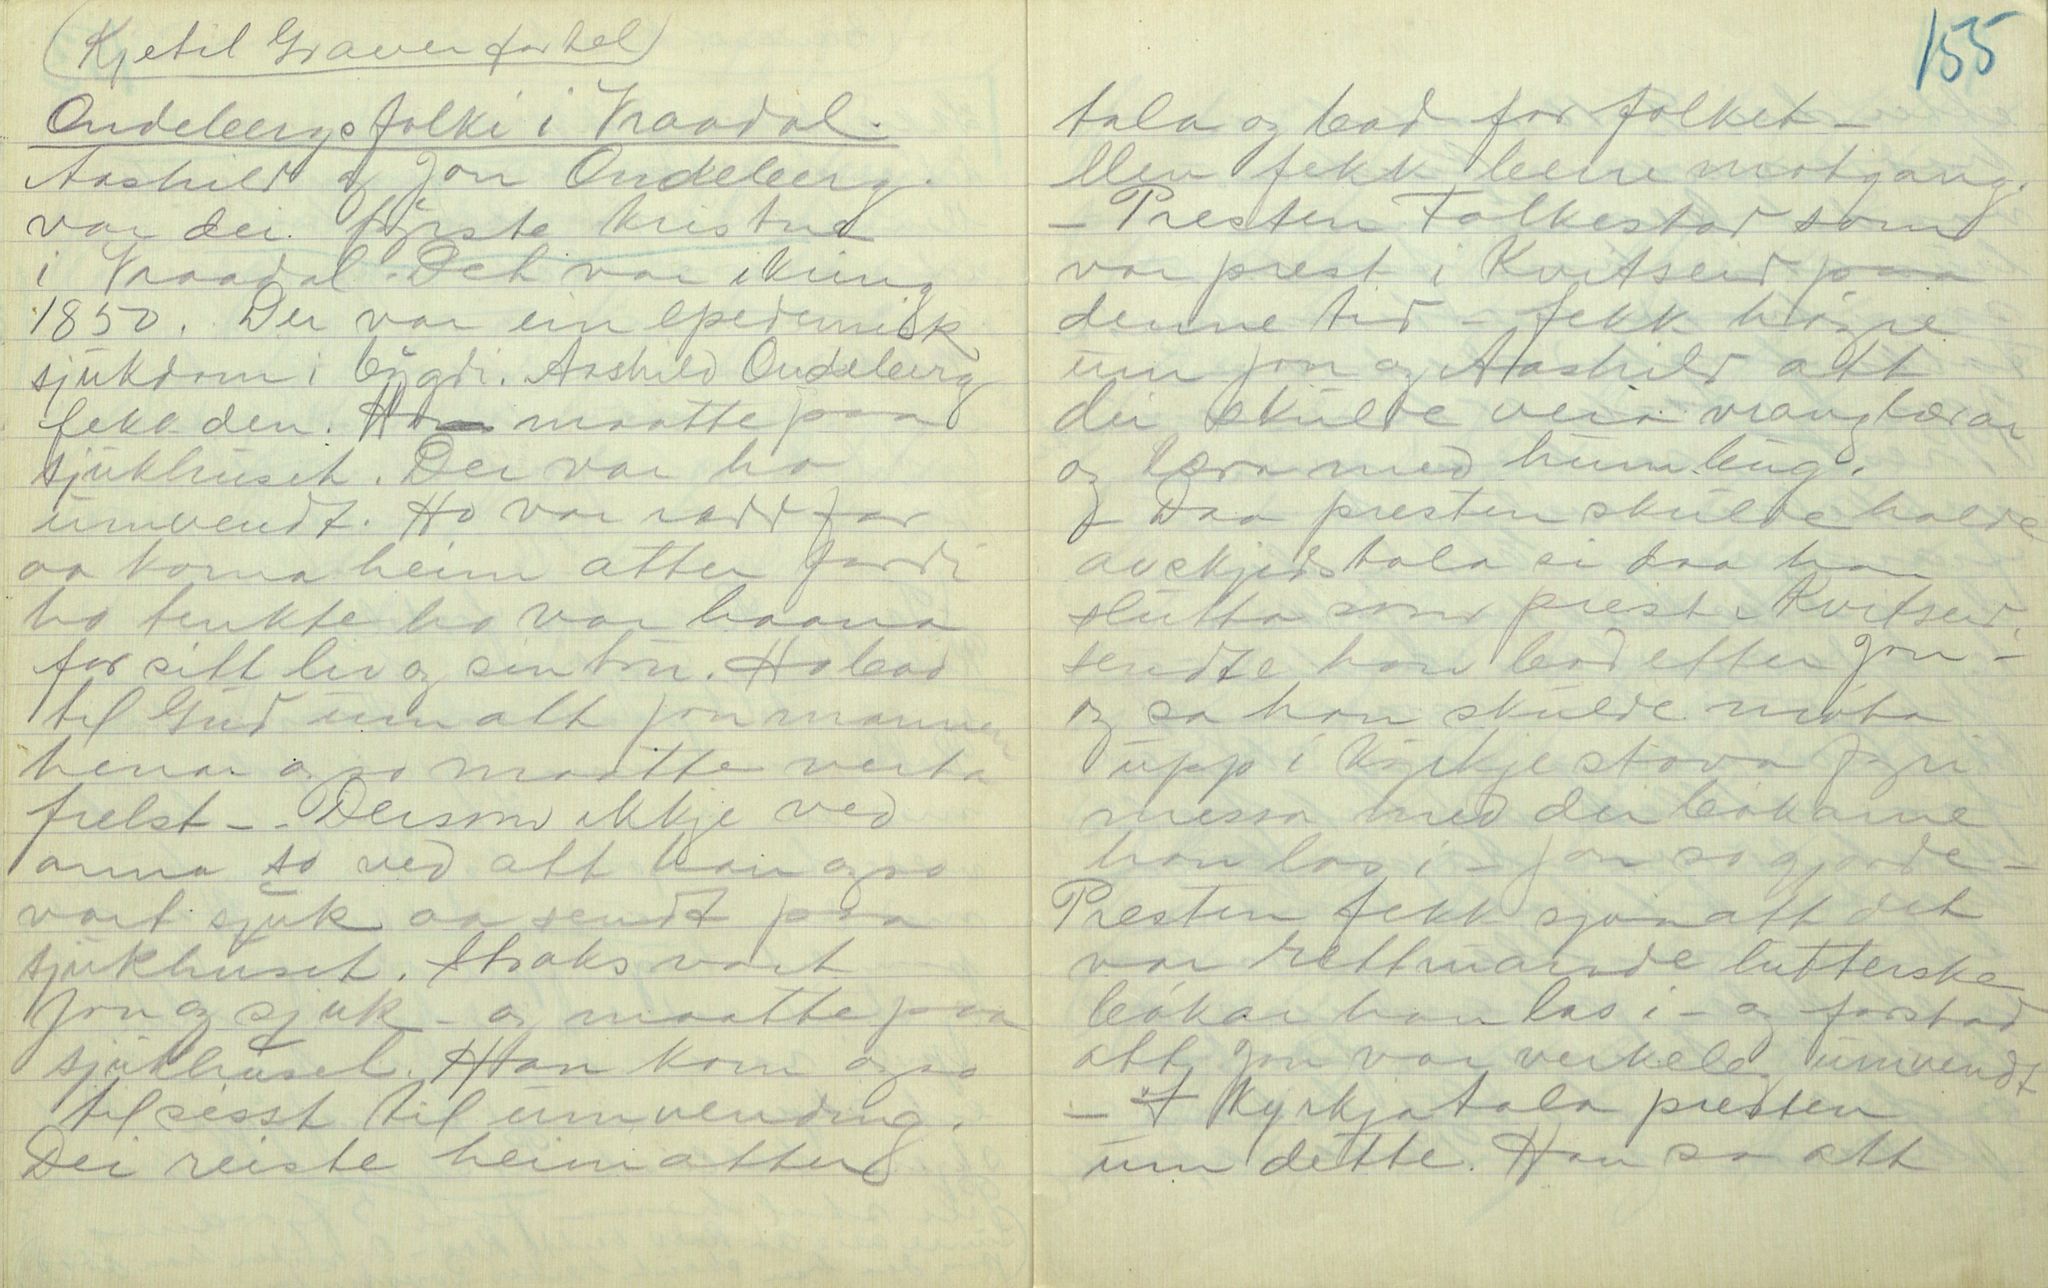 (Kjetil Graver fortel)
Ondebergsfolki i Vraadal.
Aashild og Jon Ondeberg.
var dei fyrste kristne
i Vraadal. Det var ikring
1850. Der var ein epedemisk
sjukdom i bygdi. Aashild Ondeberg
fekk den. Ho maatte paa
sjukhuset. Der var ho
umvendt. Ho var rædd for
aa koma heim atter fordi
ho tenkte ho var baana
for sitt liv og sin bøn. Ho bad
til Gud um att Jon mannen
hennar ogso maatte verta
frelst -- Dersom ikkje ved
anna so ved att han ogso
vart sjuk aa sendt paa
sjukhuset. Straks vart
Jon og sjuk - og maatte paa
sjukhuset. Han kom ogso
til sisst til umvending.
Dei reiste heim atter
155
tala og bad for folket -
Men fekk berre motgang.
- Presten Folkestad som
var prest i Kvitseid paa
denne tid - fekk høyre
um Jon og Aashild att
dei skulde vera vranglærar
og læra med humbug.
- Daa presten skulde halde
avskjedstala si daa han
slutta som prest i Kvitseid,
sendte han bod etter Jon -
og sa han skulde møta
upp i Kyrkjestova fyri
messa med dei bökarne
han las i - Jon so gjorde -
Presten fekk sjaa att det
var rettnamde lutterske
bökar han las i - og forstod
att Jon var verkeleg umvendt
- I Kyrkja tala presten
um dette. Han sa att